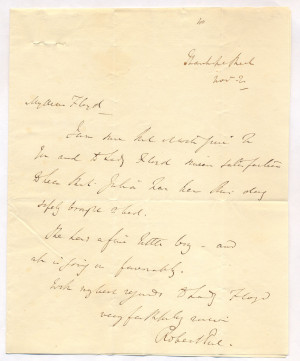 Nov 2
My dear Floyd
I am sure that it will give to
you and to Lady Floyd sincere satisfaction
to hear that Julia has been this day
safely brought to bed.
She has a fine little boy - and
all is going on favorably.
With my best regards to Lady Floyd
very faithfully yours
Robert Peel.